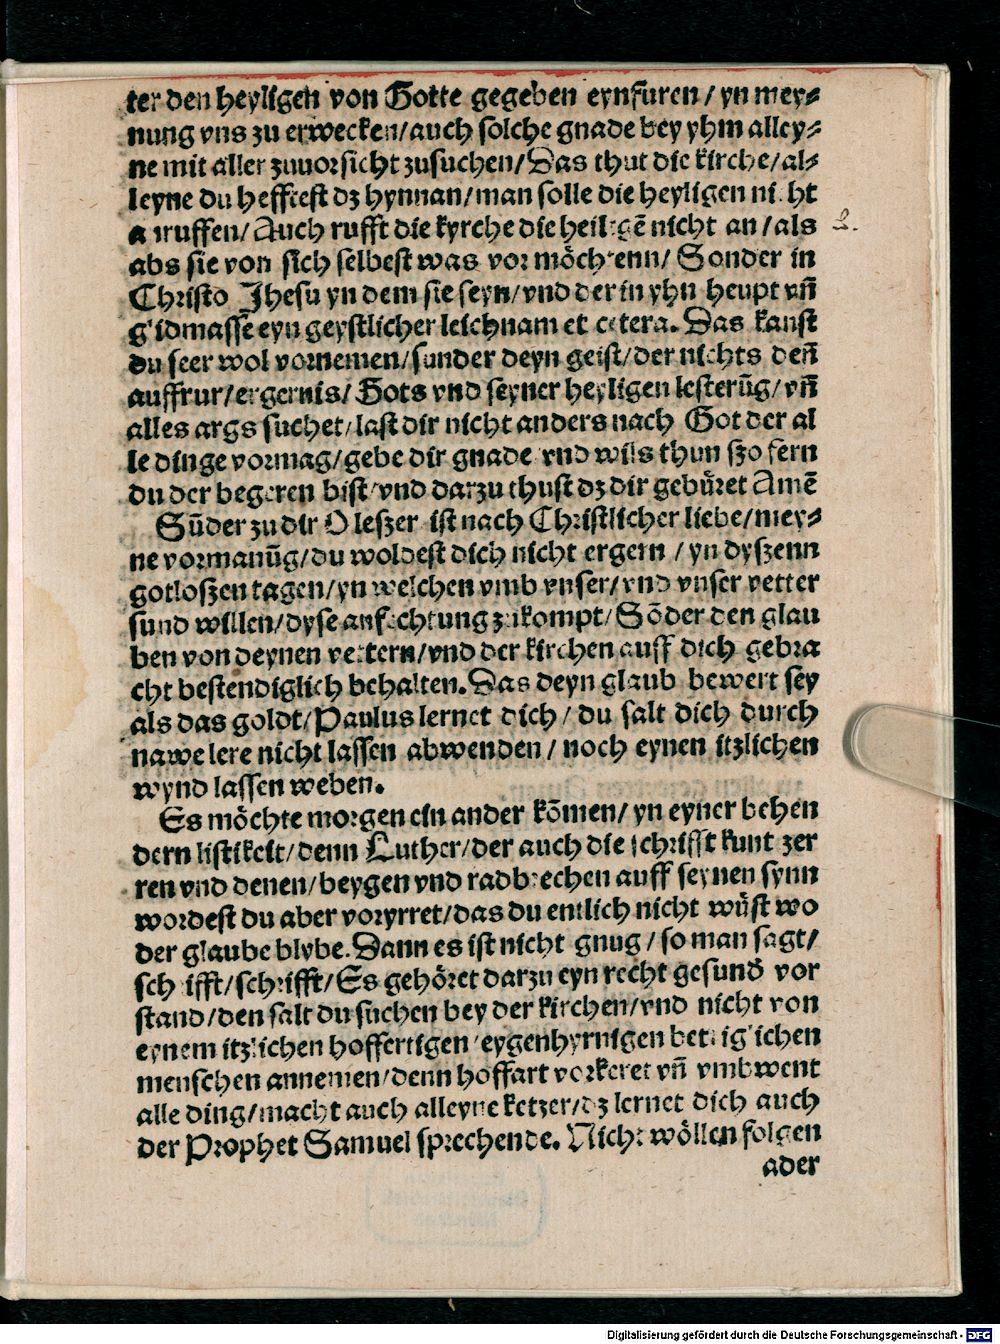 ter den heyligen von Gotte gegeben eynfuren/ yn mey⸗
nung vns zu erwecken/auch solche gnade bey yhm alley⸗
ne mit aller zuuorsicht zusuchen/Das thut die kirche/al⸗
leyne du heffteſt dz hynnan/man solle die heyligen nicht
anruffen/Auch rufft die kyrche die heiligē nicht an/als
abs sie von sich selbest was vormöchtenn/Sonder in
Christo Jhesu yn dem sie seyn/vnd der in yhn heupt vñ
glidmassē eyn geystlicher leichnam et cetera. Das kanst
du seer wol vornemen/sunder deyn geist/der nichts deñ
auffrur/ergernis/Gots vnd seyner heyligen lesterūg/vñ
alles args suchet/last dir nicht anders nach Got der al
le dinge vormag/gebe dir gnade vnd wils thun szo fern
du der begeren bist/vnd darzu thust dz dir gebüret Amē
Sūder zu dir O leszer ist nach Christlicher liebe/mey⸗
ne vormanūg/du woldest dich nicht ergern/yn dyszenn
gotloszen tagen/yn welchen vmb vnser/vnd vnser vetter
sund willen/dyse anfechtung zukompt/Sōder den glau
ben von deynen vettern/vnd der kirchen auff dich gebra
cht bestendiglich behalten. Das deyn glaub bewert sey
als das goldt/Paulus lernet dich/du salt dich durch
nawe lere nicht lassen abwenden/noch eynen itzlichen
wynd lassen weben.
Es möchte morgen ein ander kōmen/yn eyner behen
dern listikeit/denn Luther/der auch die schrifft kunt zer
ren vnd denen/beygen vnd radbrechen auff seynen synn
wordest du aber voryrret/das du entlich nicht wüst wo
der glaube blybe. Dann es ist nicht gnug/so man sagt/
schrifft/schrifft/Es gehöret darzu eyn recht gesund vor
stand/den salt du suchen bey der kirchen/vnd nicht von
eynem itzlichen hoffertigen/eygenhyrnigen betriglichen
menschen annemen/denn hoffart vorkeret vñ vmbwent
alle ding/macht auch alleyne ketzer/dz lernet dich auch
der Prophet Samuel sprechende. Nicht wöllen folgen
ader
Digitalisierung gefördert durch die Deutsche Forschungsgemeinschaft - DFG